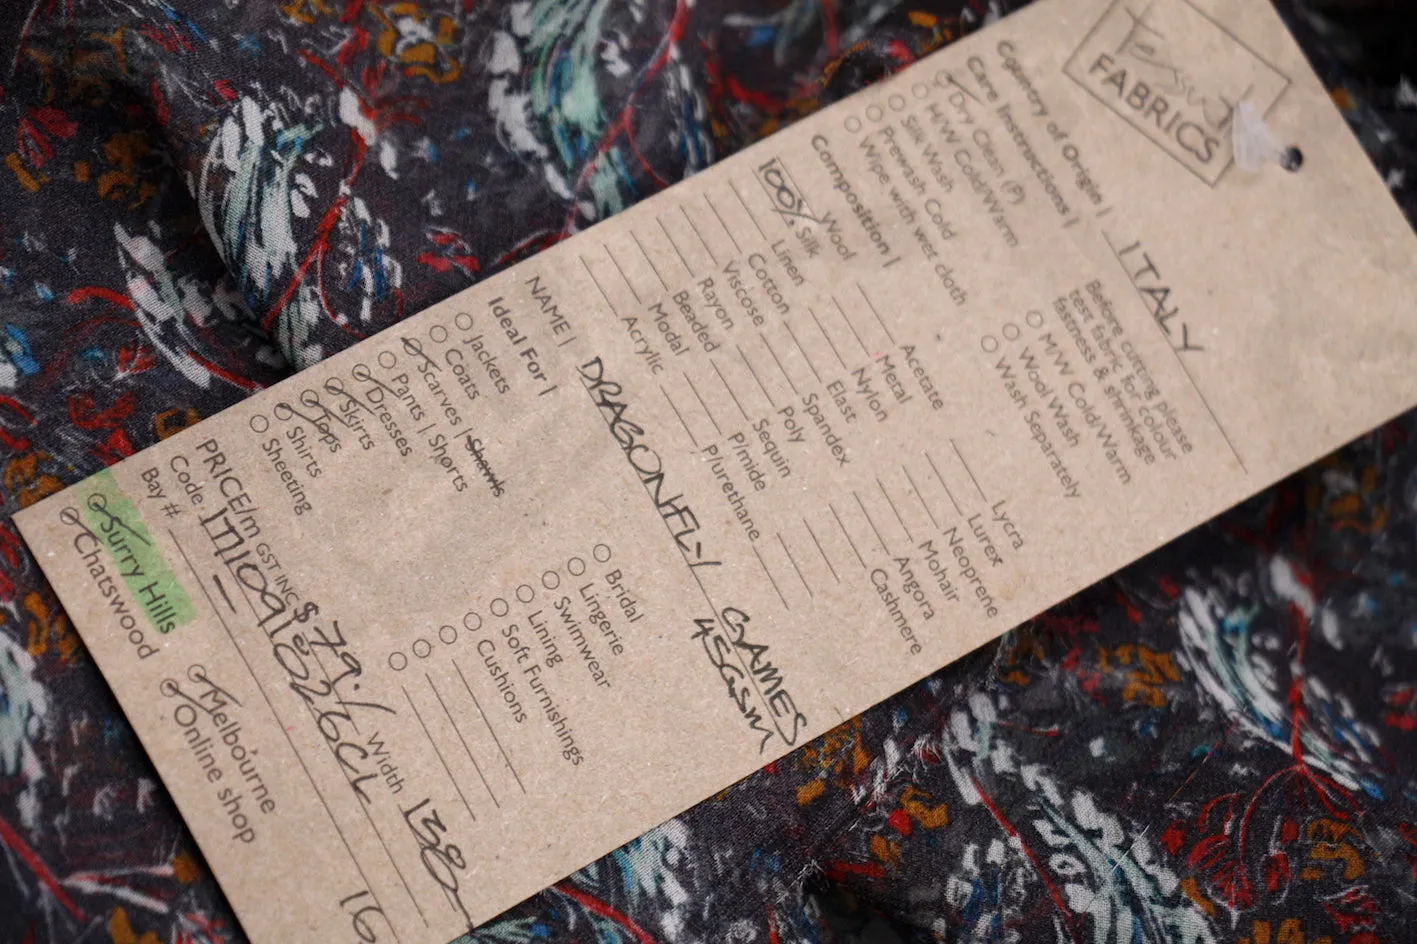 Tessuti
FABRICS
Country of Origin | ITALY
Care Instructions |
Dry Clean (P)
H/W Cold/Warm
Silk Wash
Prewash Cold
Wipe with wet cloth
Before cutting please
test fabric for colour
fastness & shrinkage
M/W Cold/Warm
Wool Wash
Wash Separately
Composition |
Wool
100% Silk
Linen
Cotton
Viscose
Rayon
Beaded
Modal
Acrylic
Acetate
Metal
Nylon
Elast
Spandex
Poly
Sequin
P/mide
Plurethane
Lycra
Lurex
Neoprene
Mohair
Angora
Cashmere
NAME | DRAGONFLY GAMES
45GSM
Ideal For |
Jackets
Coats
Scarves | Shawls
Pants | Shorts
Dresses
Skirts
Tops
Shirts
Sheeting
Bridal
Lingerie
Swimwear
Lining
Soft Furnishings
Cushions
PRICE/m GST INC $79./ Width 138
Code
Bay #: 16
Surry Hills
Chatswood
Melbourne
Online shop